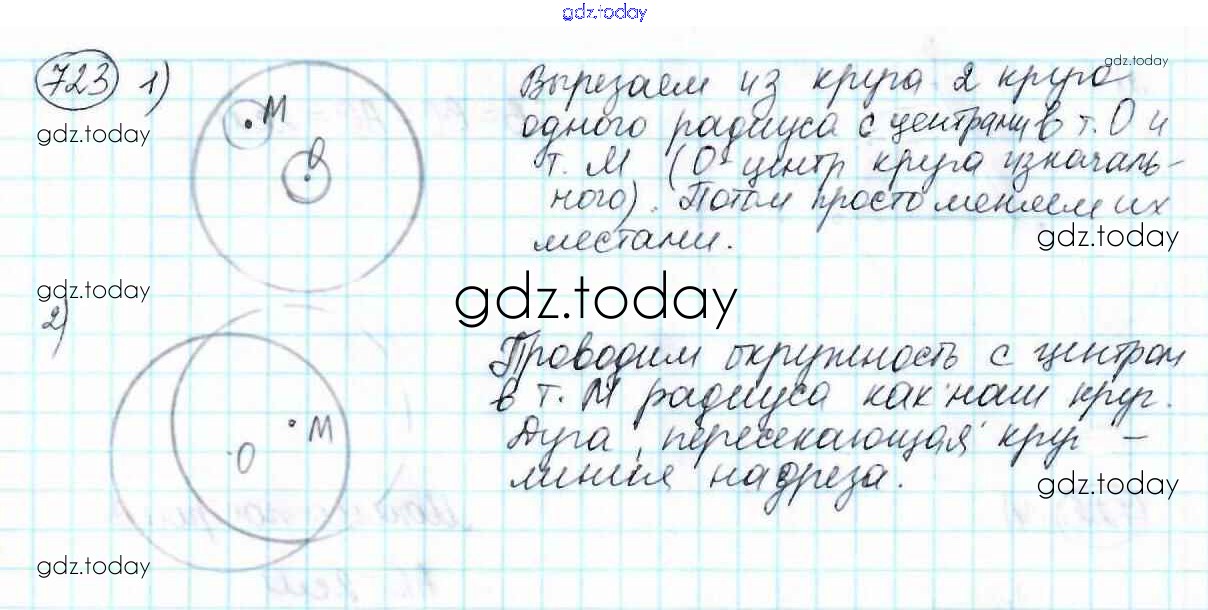 gdz.today
723 1)
M
O
gdz.today
gdz.today
Вырезаем из круга 2 круга
одного радиуса с центрами в т. О и
т. М (О - центр круга изначаль-
ного). Потом просто меняем их
местами.
gdz.today
gdz.today
gdz.today
2)
M
O
Проводим окружность с центром
в т. М радиуса как наш круг.
Дуга, пересекающая круг -
линия надреза.
gdz.today
gdz.today